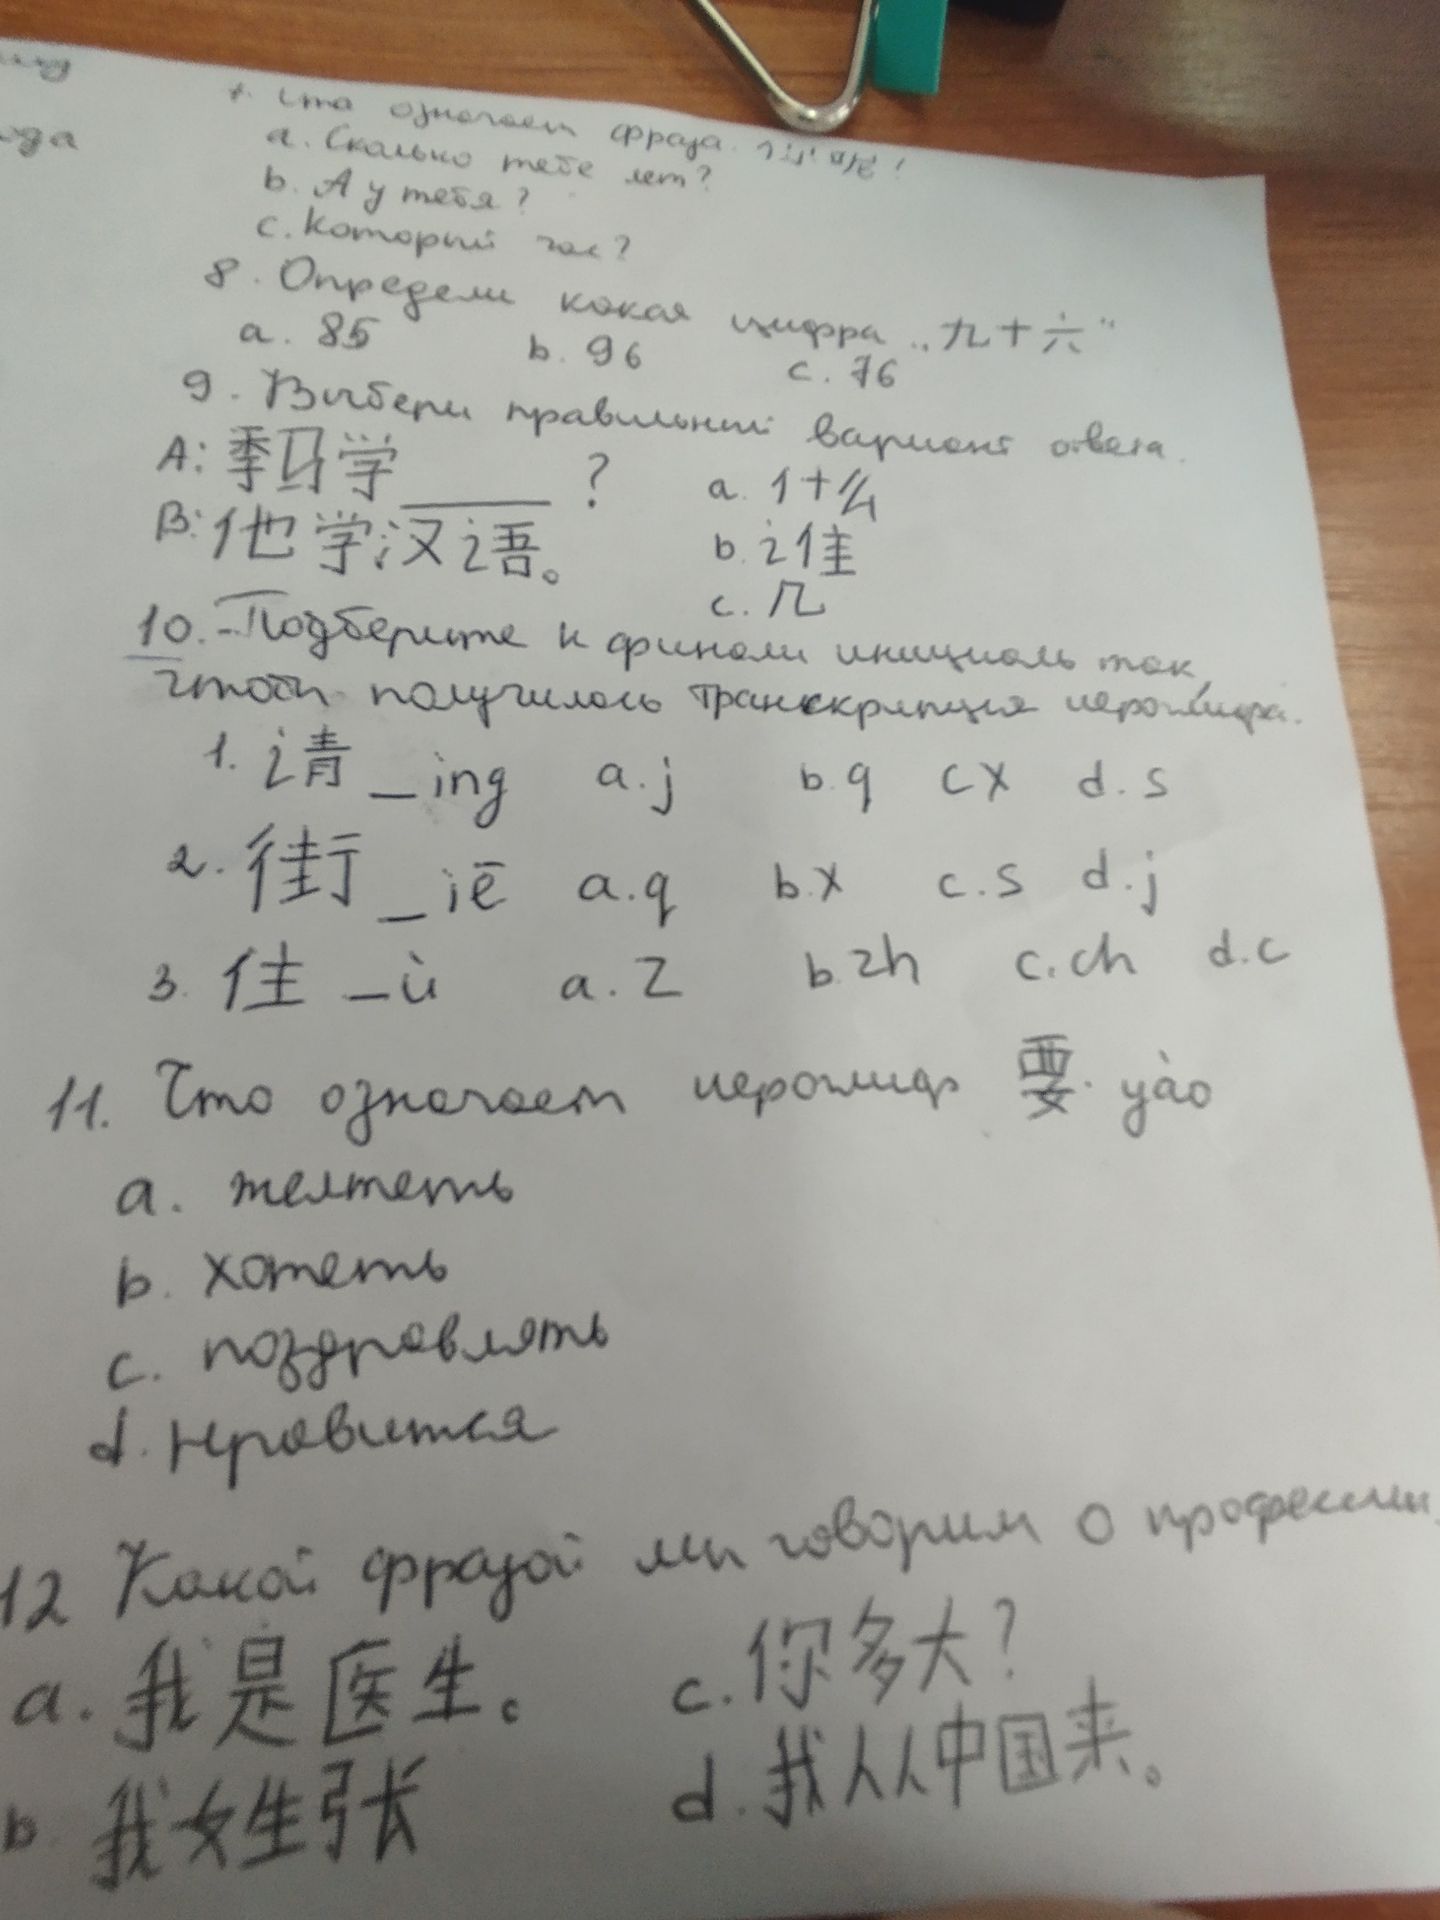 7. Что означает фраза
a. Сколько тебе лет?
b. А у тебя?
c. Который час?
8. Определи какая цифра „九十六"
a. 85 b. 96 c. 76
9. Выбери правильный вариант ответа.
A: 季马学______? a. 什么
B: 他学汉语。 b. 谁
c. 几
10. Подберите к финали инициаль так,
чтобы получилось транскрипция иероглифа.
1. 请 _ing a. j b. q c x d. s
2. 街 _iē a. q b. x c. s d. j
3. 住 _ù a. z b. zh c. ch d. c
11. Что означает иероглиф 要 yào
a. желтеть
b. хотеть
c. поздровлять
d. нравится
12 Какой фразой мы говорим о профессии.
a. 我是医生。 c. 你多大?
b 我姓张 d. 我人从中国来。